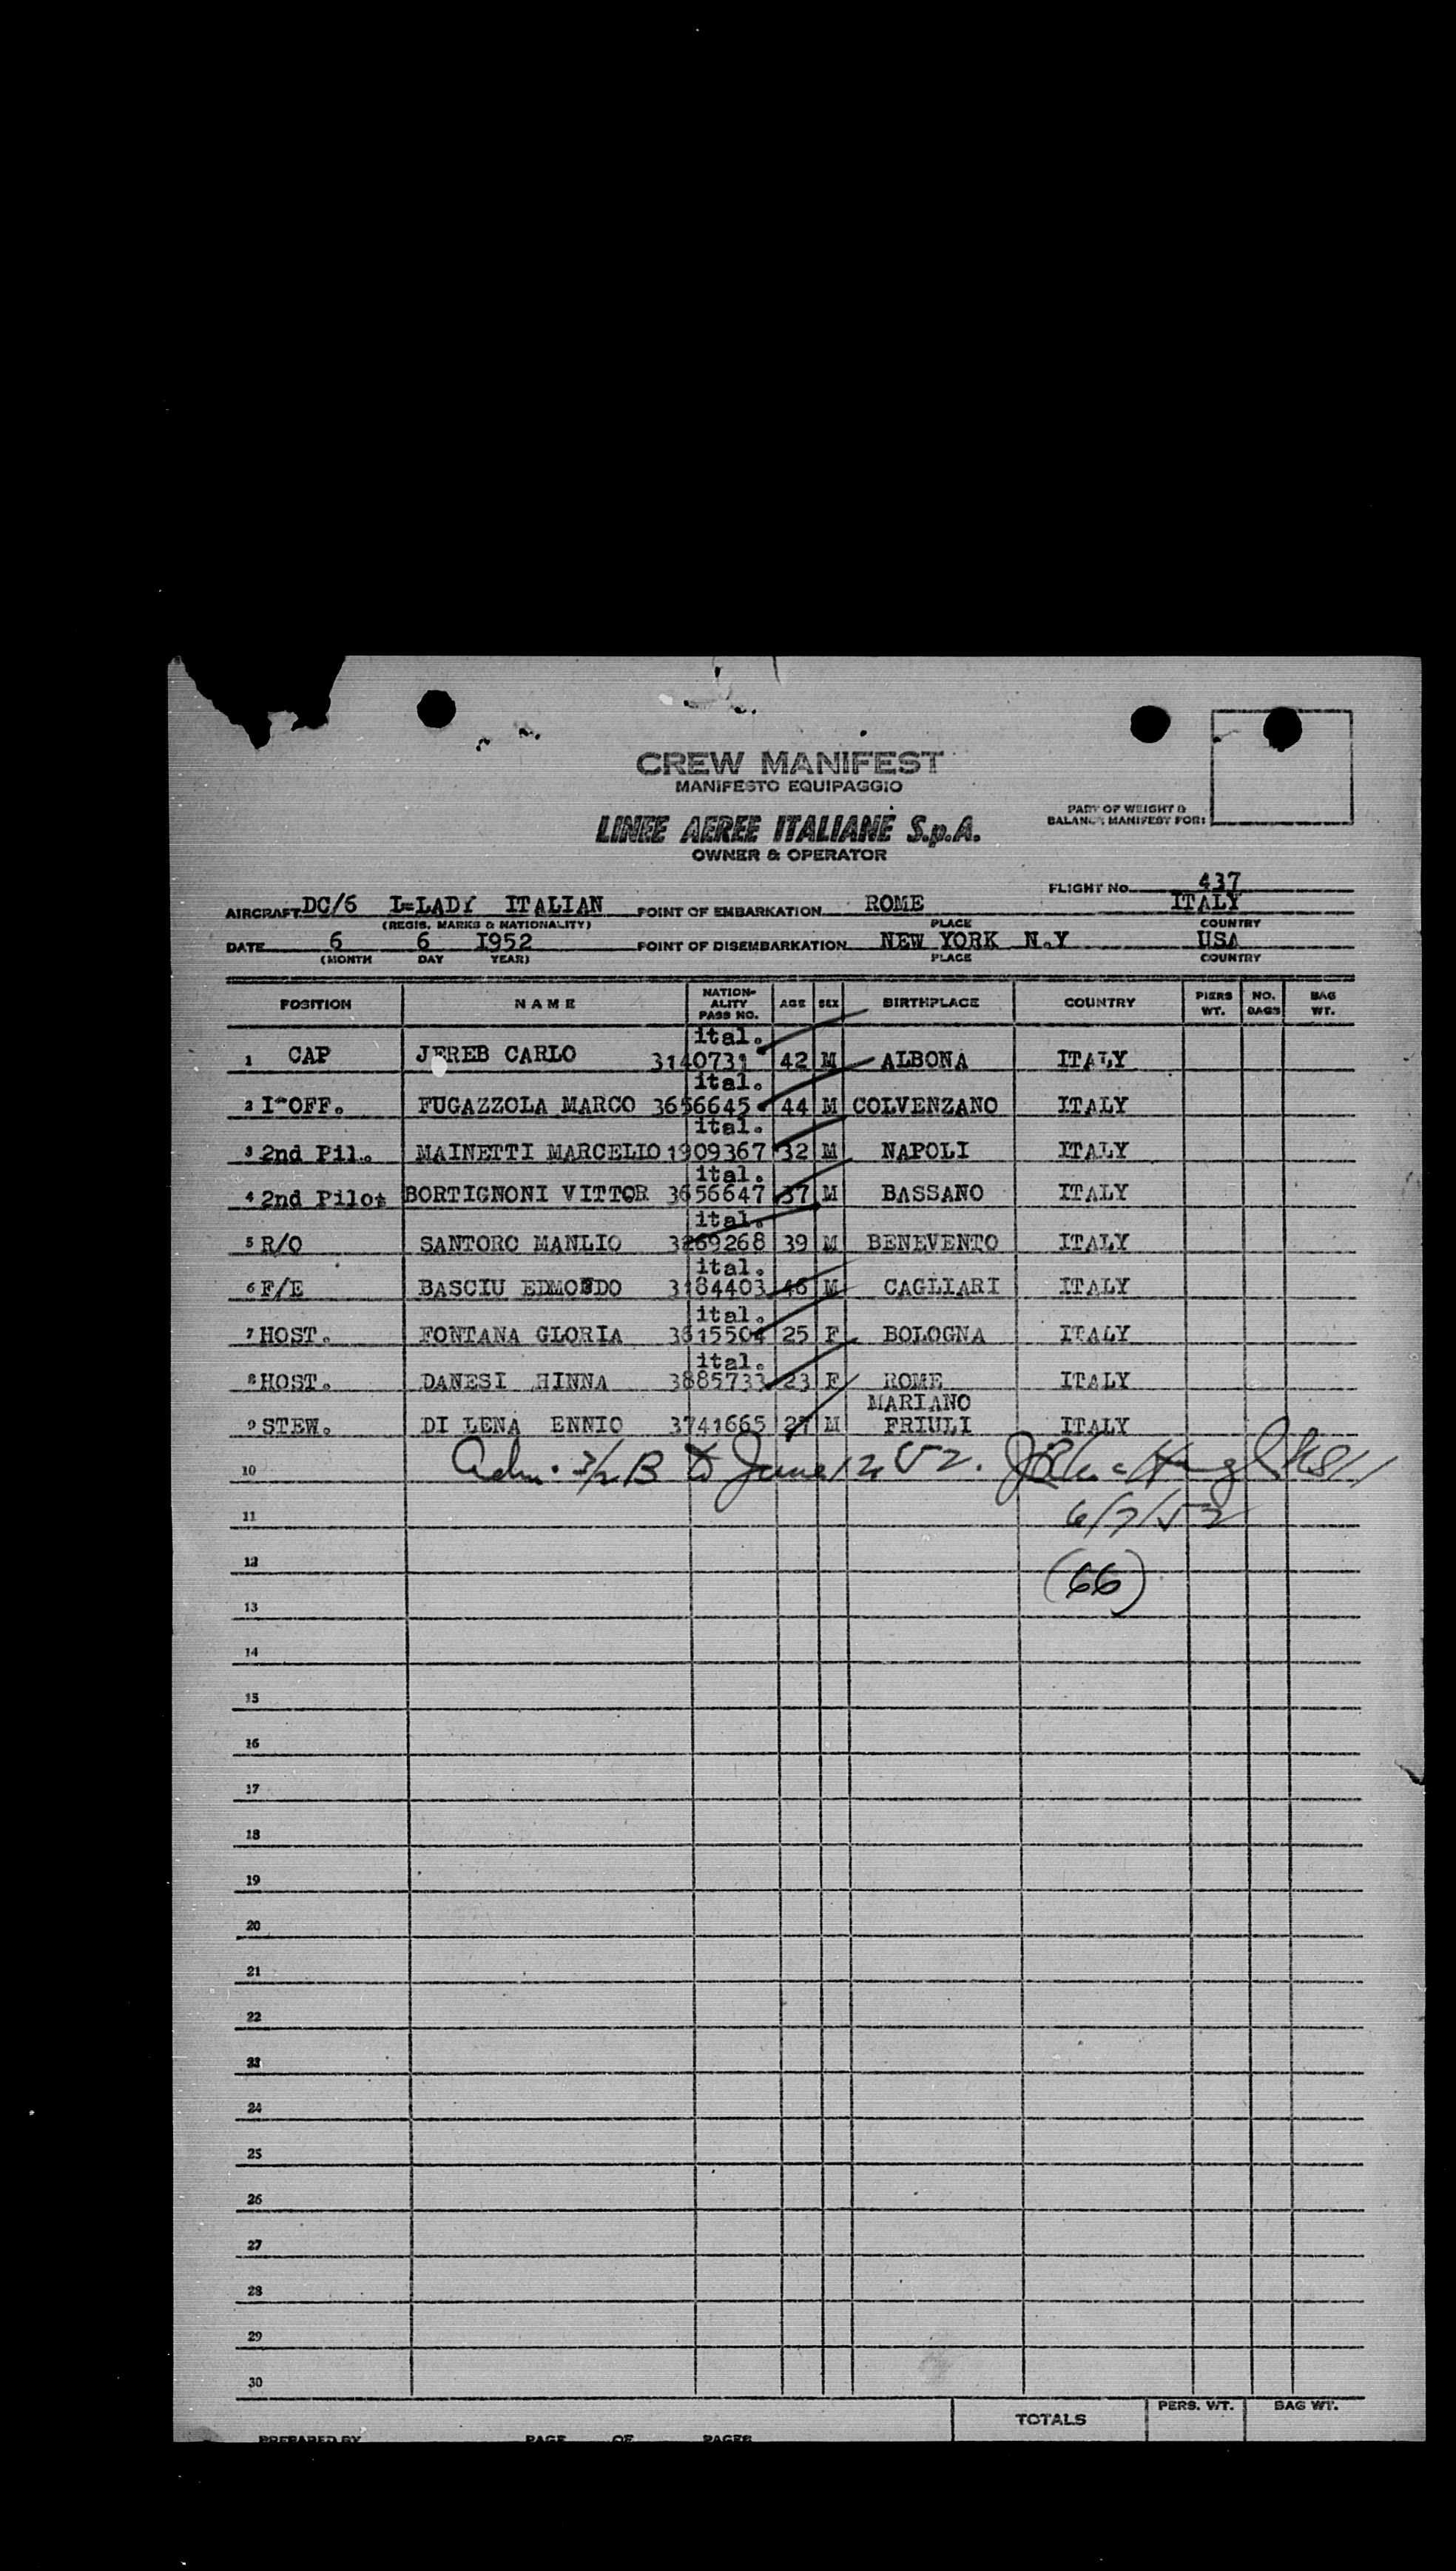 CREW MANIFEST
MANIFESTO EQUIPAGGIO
PART OF WEIGHT &
BALANCE MANIFEST FOR:
LINEE AEREE ITALIANE S.p.A.
OWNER & OPERATOR
FLIGHT No. 437
AIRCRAFT DC/6 I-LADY ITALIAN POINT OF EMBARKATION ROME ITALY
(REGIS, MARKS & NATIONALITY) PLACE COUNTRY
DATE 6 6 I952 POINT OF DISEMBARKATION NEW YORK N.Y USA
(MONTH DAY YEAR) PLACE COUNTRY
POSITION NAME NATION-ALITY PASS NO. AGE SEX BIRTHPLACE COUNTRY PIERS WT. NO. BAGS BAG WT.
ital.
1 CAP JEREB CARLO 3140731 42 M ALBONA ITALY
ital.
2 I°OFF. FUGAZZOLA MARCO 3656645 44 M COLVENZANO ITALY
ital.
3 2nd Pil. MAINETTI MARCELLO 1909367 32 M NAPOLI ITALY
ital.
4 2nd Pilot BORTIGNONI VITTOR 3656647 37 M BASSANO ITALY
ital.
5 R/O SANTORO MANLIO 3269268 39 M BENEVENTO ITALY
ital.
6 F/E BASCIU EDMONDO 3184403 46 M CAGLIARI ITALY
ital.
7 HOST. FONTANA GLORIA 3615504 25 F BOLOGNA ITALY
ital.
8 HOST. DANESI HINNA 3885733 23 F ROME ITALY
MARIANO
9 STEW. DI LENA ENNIO 3741665 27 M FRIULI ITALY
10 Adm. 3/2 B to June 12 52.
11 6/7/52
12 (66)
13
14
15
16
17
18
19
20
21
22
23
24
25
26
27
28
29
30
TOTALS PERS. WT. BAG WT.
PREPARED BY PAGE OF PAGES